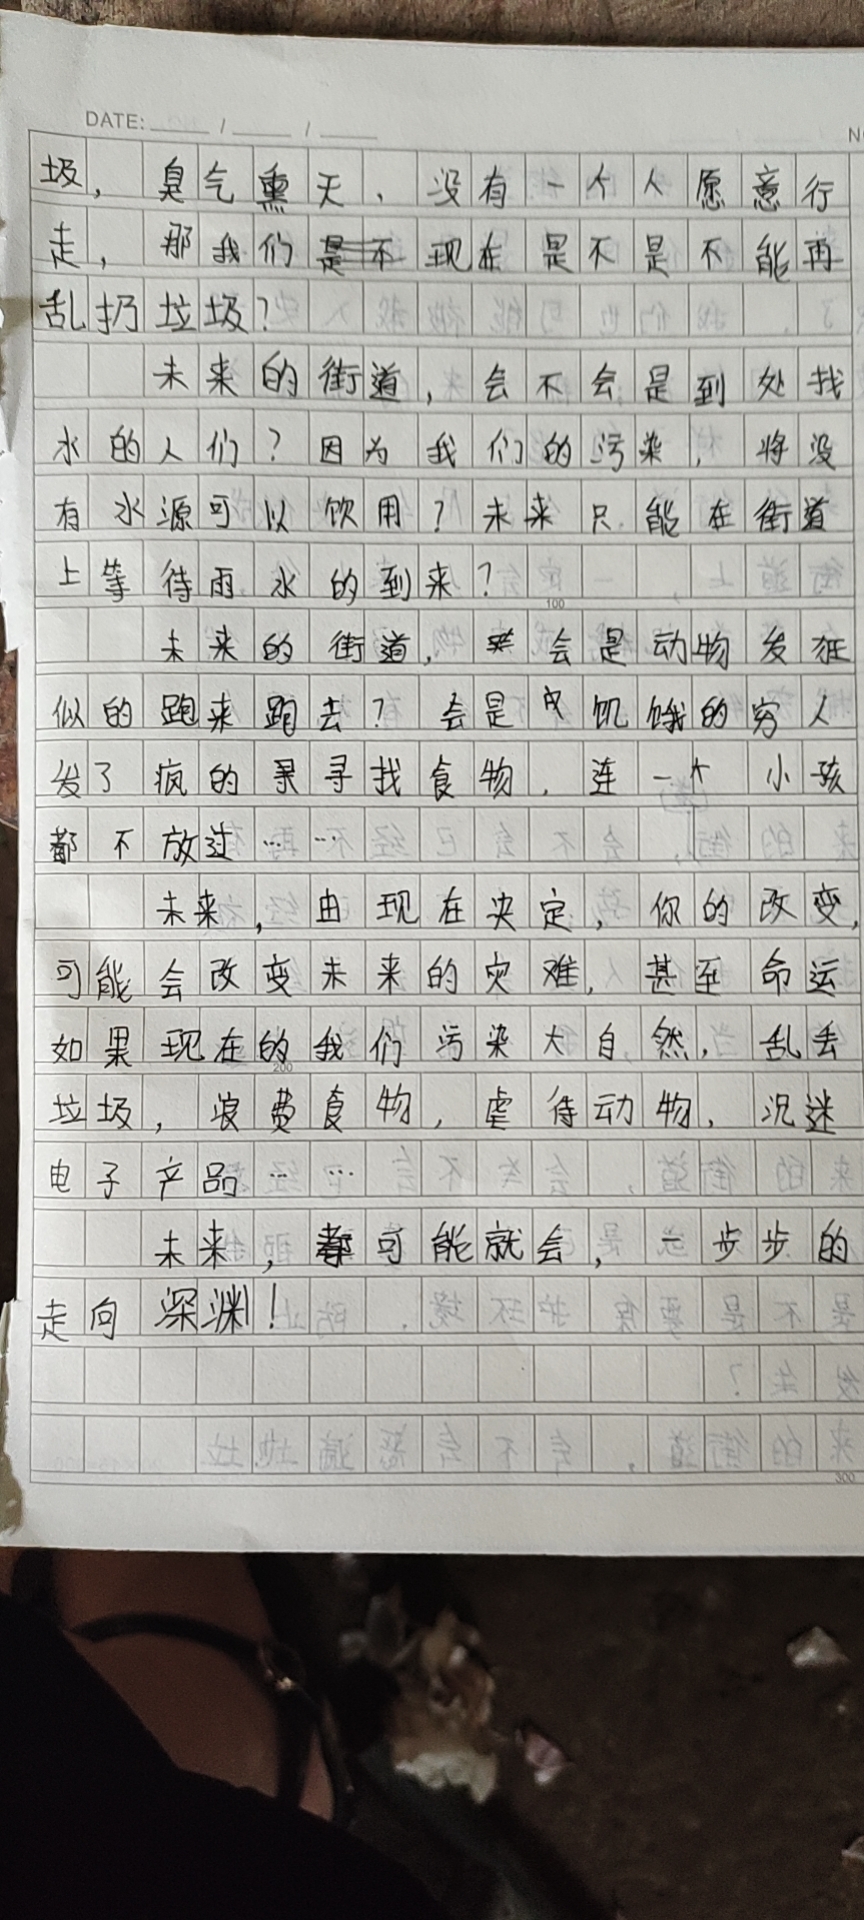 DATE: / /
圾，臭气熏天，没有一个人愿意行
走，那我们现在是不是不能再
乱扔垃圾？
未来的街道，会不会是到处找
水的人们？因为我们的污染，将没
有水源可以饮用？未来只能在街道
上等待雨水的到来？
100
未来的街道，会是动物发狂
似的跑来跑去？会是饥饿的穷人
发了疯的寻找食物，连一个小孩
都不放过……
未来，由现在决定，你的改变，
可能会改变未来的灾难，甚至命运
如果现在的我们污染大自然，乱丢
200
垃圾，浪费食物，虐待动物，沉迷
电子产品……
未来，都可能就会，一步步的
走向深渊！
300